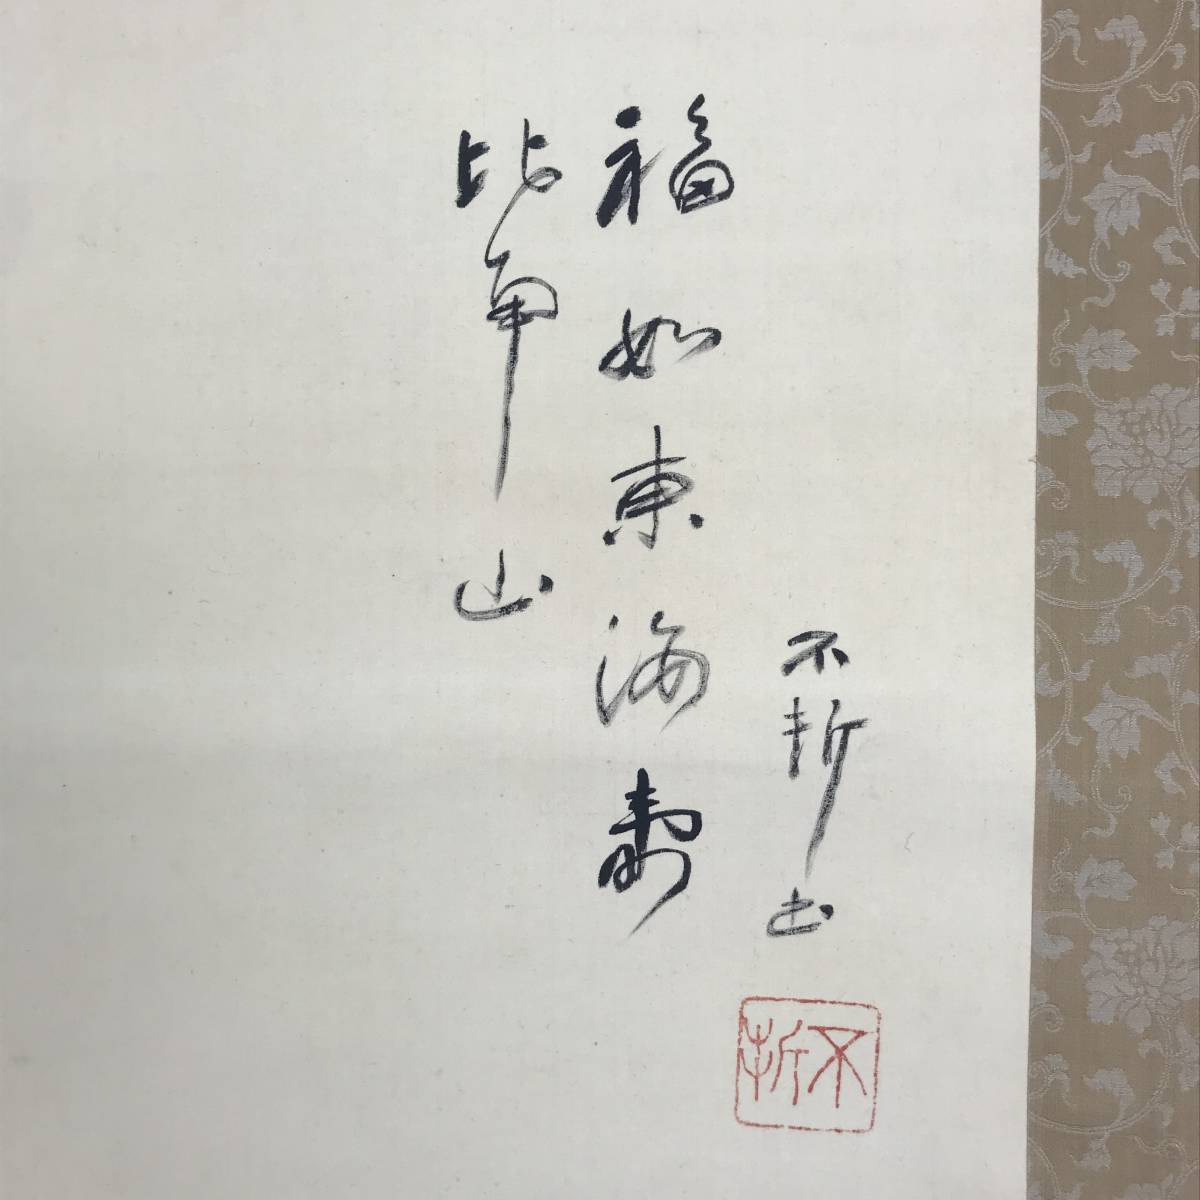 福如東海壽
比南山
不折
不折